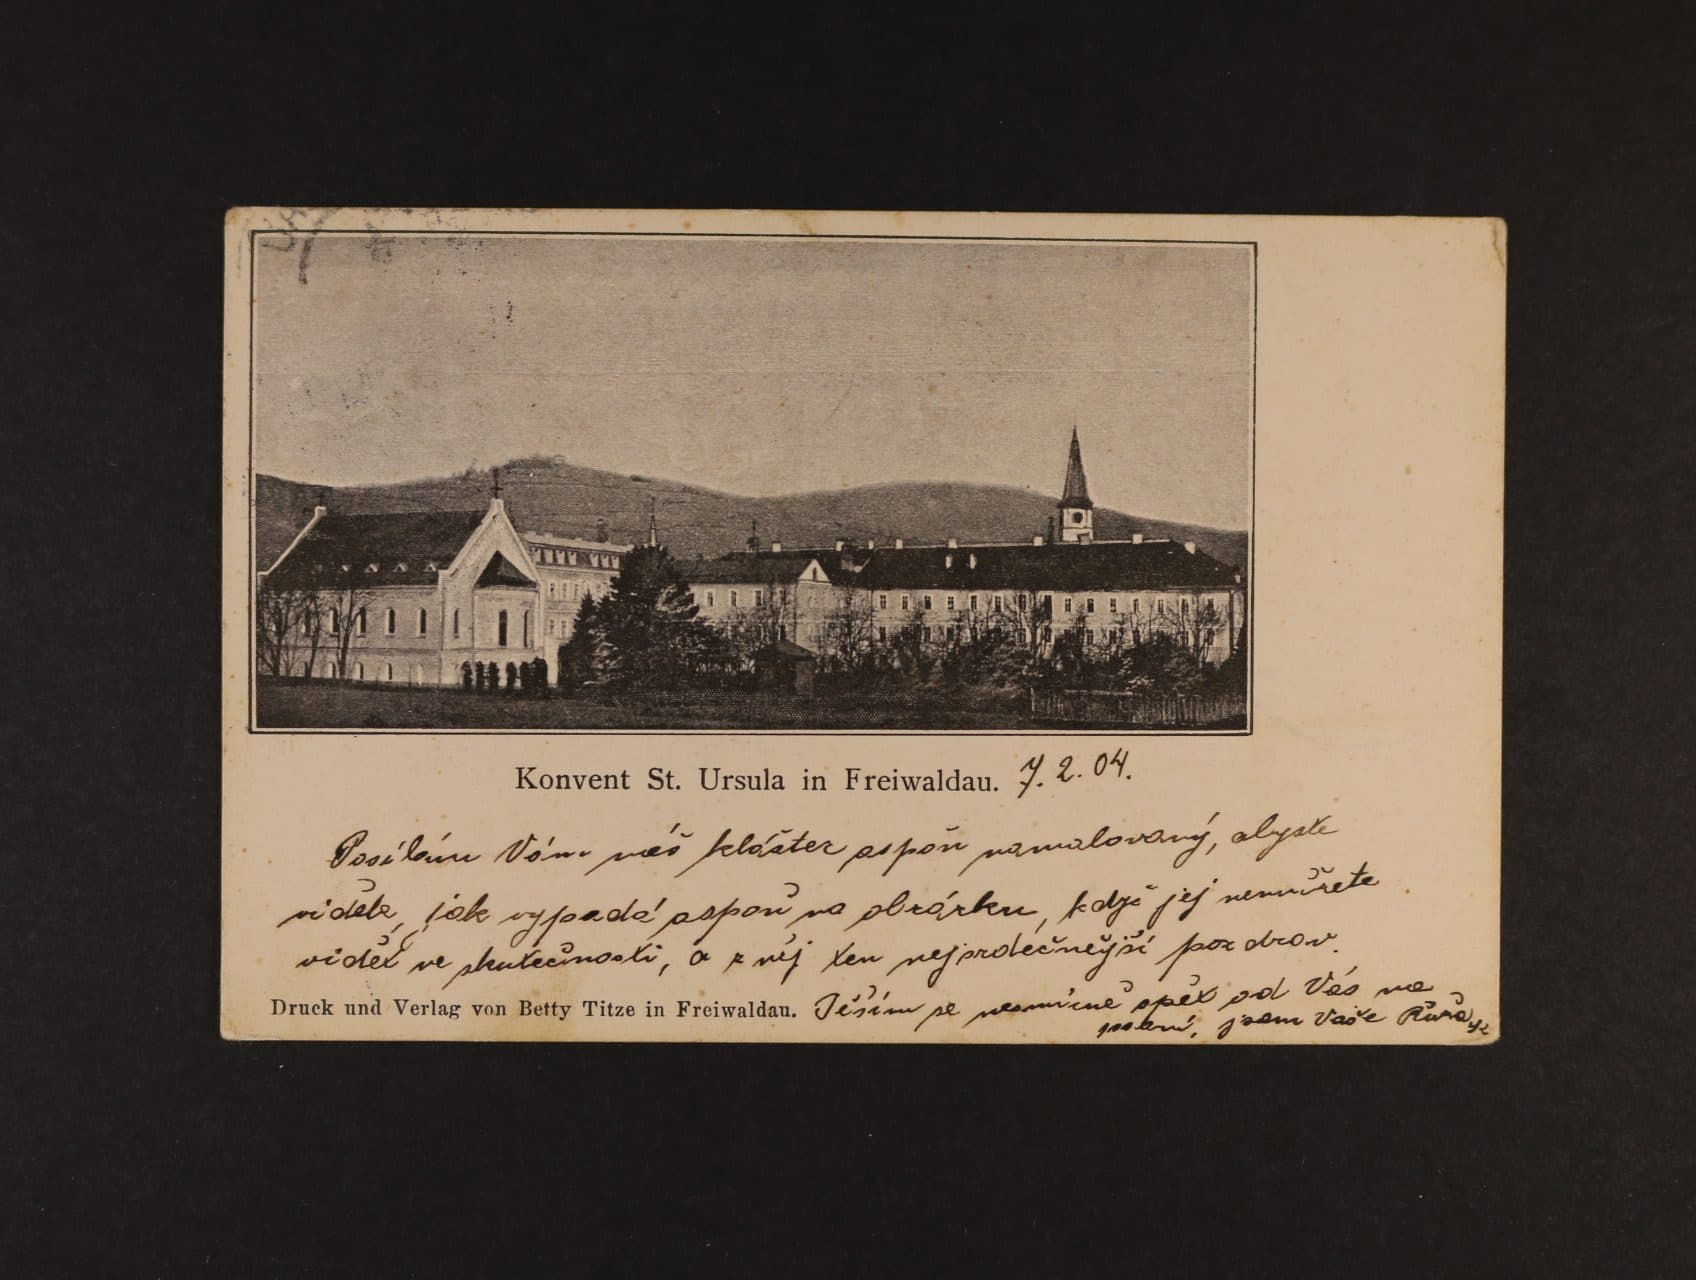 Konvent St. Ursula in Freiwaldau. 7. 2. 04.
Posílám Vám náš klášter aspoň namalovaný, abyste
viděli, jak vypadá aspoň na obrázku, když jej nemůžete
vidět ve skutečnosti, a z něj ten nejsrdečnější pozdrav.
Druck und Verlag von Betty Titze in Freiwaldau. Těším se nesmírně zpět od Vás na
psaní, jsem Vaše Růža